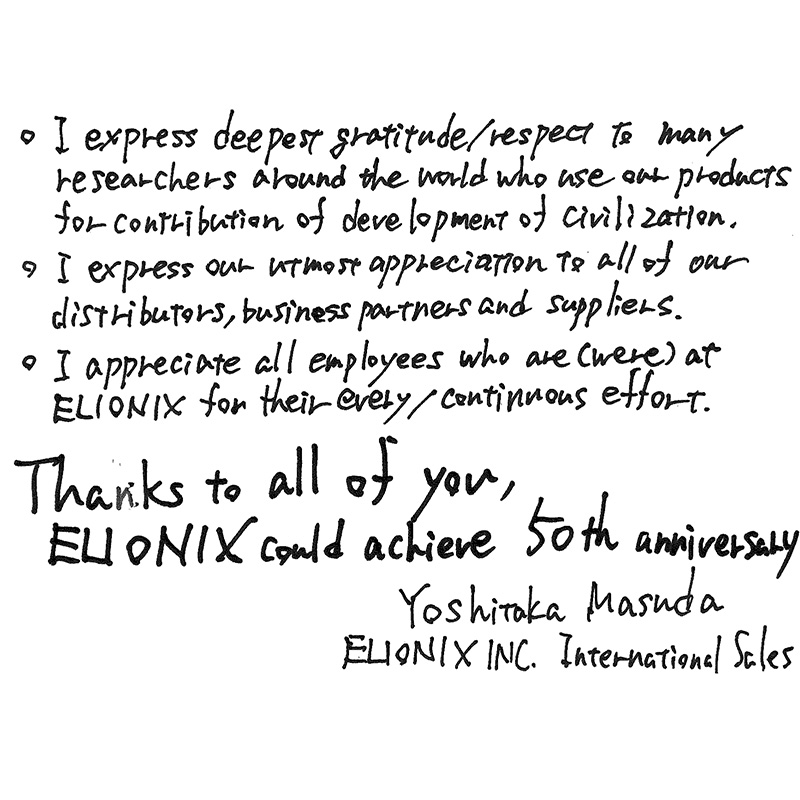 o I express deepest gratitude/respect to many
researchers around the world who use our products
for contribution of development of civilization.
o I express our utmost appreciation to all of our
distributors, business partners and suppliers.
o I appreciate all employees who are (were) at
ELIONIX for their every/continuous effort.
Thanks to all of you,
ELIONIX could achieve 50th anniversary
Yoshitaka Masuda
ELIONIX INC. International Sales